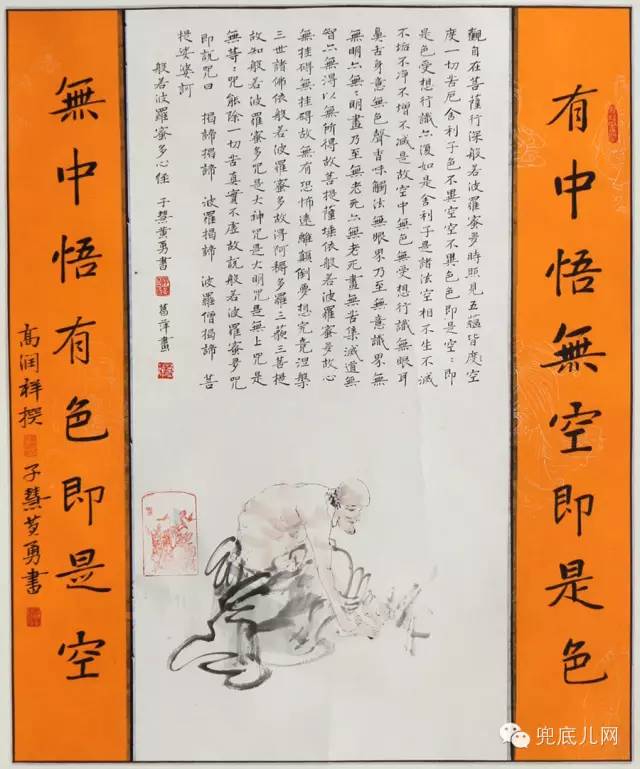 有中悟無空即是色
觀自在菩薩行深般若波羅蜜多時照見五蘊皆度空
度一切苦厄舍利子色不異空空不異色色即是空〻即
是色受想行識亦復如是舍利子是諸法空相不生不滅
不垢不淨不增不減是故空中無色無受想行識無眼耳
鼻舌身意無色聲香味觸法無眼界乃至無意識界無
無明亦無〻明盡乃至無老死亦無老死盡無苦集滅道無
智亦無得以無所得故菩提薩埵依般若波羅蜜多故心
無挂碍無挂碍故無有恐怖遠離顛倒夢想究竟涅槃
三世諸佛依般若波羅蜜多故得阿耨多羅三藐三菩提
故知般若波羅蜜多咒是大神咒是大明咒是無上咒是
無等〻咒能除一切苦真實不虛故說般若波羅蜜多咒
即說咒曰 揭諦揭諦 波羅揭諦 波羅僧揭諦 菩
提娑婆訶
般若波羅蜜多心經 子慧黄勇書 菖萍畫
無中悟有色即是空
高润祥撰 子慧黄勇書
兜底儿网